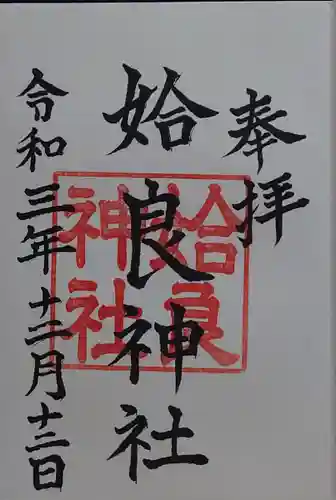 奉拝
姶良神社
姶良
神社
令和三年十二月十三日